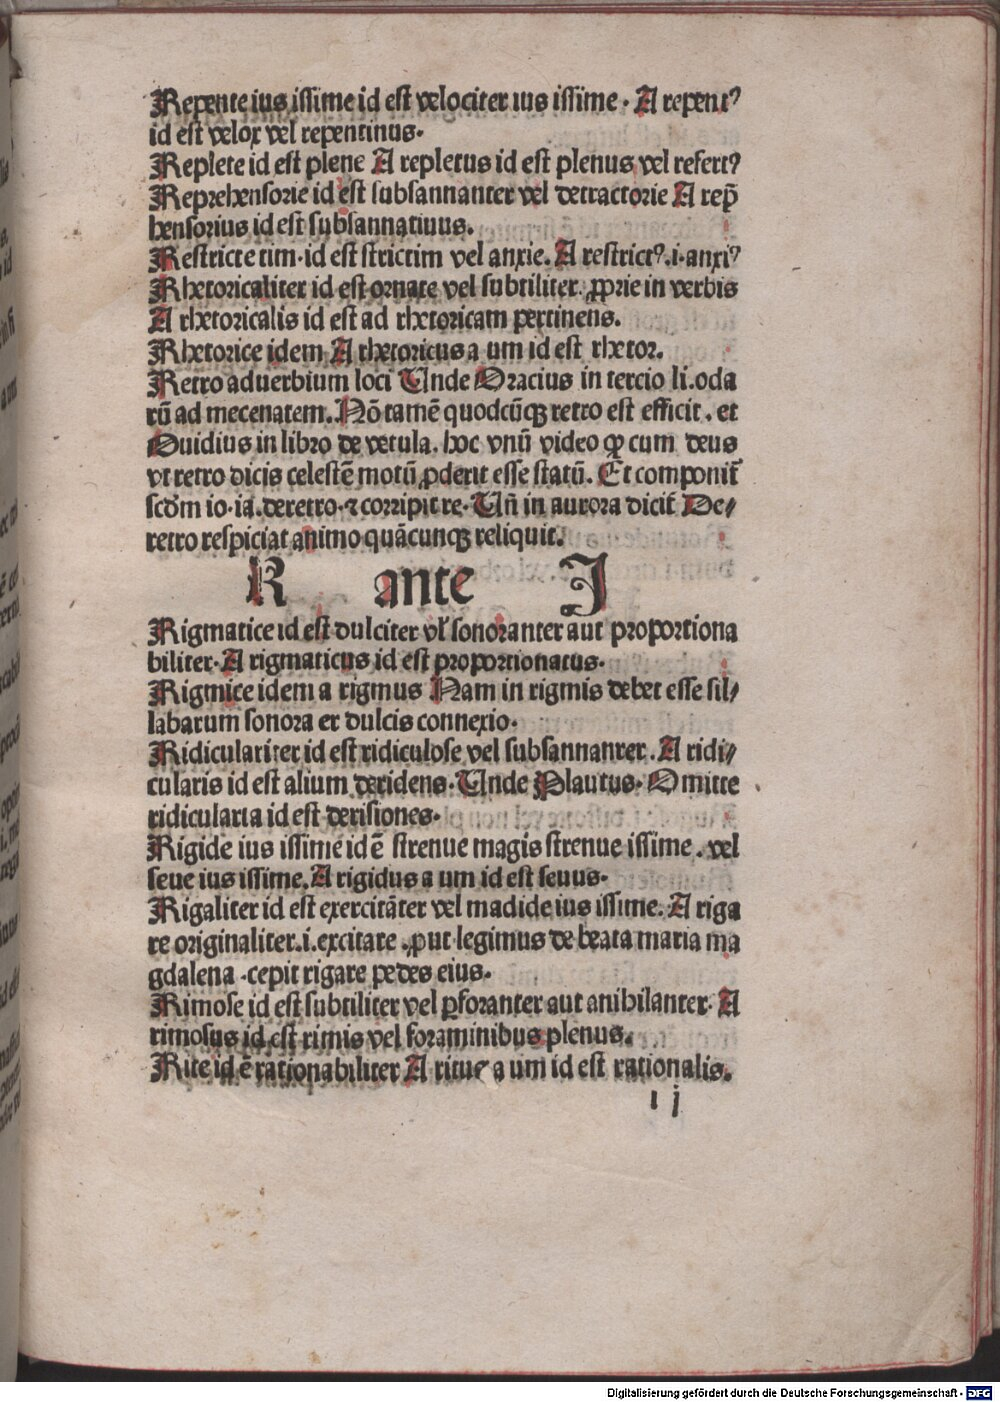 Repente ius issime id est velociter ius issime · A repentꝰ
id est velox vel repentinus·
Replete id est plene A repletus id est plenus vel refertꝰ
Reprehensorie id est subsannanter vel detractorie A rep̄
hensorius id est subsannatiuus.
Restricte tim· id est strictim vel anxie. A restrictꝰ.i.anxiꝰ
Rhetoricaliter id est ornate vel subtiliter. ꝓprie in verbis
A rhetoricalis id est ad rhetoricam pertinens.
Rhetorice idem A rhetoricus a um id est rhetor.
Retro aduerbium loci Unde Oracius in tercio li. oda
rū ad mecenatem. Nō tamē quodcūqꝫ retro est efficit. et
Ouidius in libro de vetula. hoc vnū video ꝙ cum deus
vt retro dicis celestē motū ꝓderit esse statū. Et componit̄
scd̄m io· ia. deretro· ⁊ corripit re· Un̄ in aurora dicit̄ De⸗
retro respiciat animo quācunqꝫ reliquit.
R ante I
Rigmatice id est dulciter vł sonoranter aut proportiona
biliter· A rigmaticus id est proportionatus·
Rigmice idem a rigmus Nam in rigmis debet esse sil⸗
labarum sonora et dulcis connexio·
Ridiculariter id est ridiculose vel subsannanter. A ridi⸗
cularis id est alium deridens. Unde Plautus· Omitte
ridicularia id est derisiones·
Rigide ius issime id ē strenue magis strenue issime . vel
seue ius issime. A rigidus a um id est seuus·
Rigaliter id est exercitāter vel madide ius issime. A riga
re originaliter.i. excitare .ꝓut legimus de beata maria ma
gdalena ·cepit rigare pedes eius·
Rimose id est subtiliter vel ꝑforanter aut anibilanter· A
rimosus id est rimis vel foraminibus plenus.
Rite id ē rationabiliter A ritus a um id est rationalis.
i j
Digitalisierung gefördert durch die Deutsche Forschungsgemeinschaft · DFG